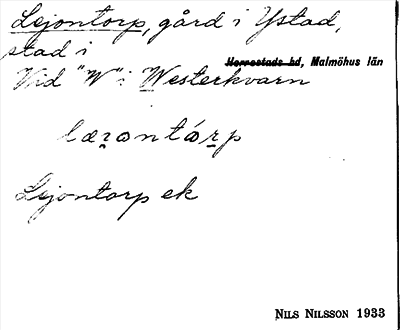 Lejontorp, gård i Ystad,
stad i
Herrestads hd, Malmöhus län
Vid "W" i Westerkvarn
lærantárp
Lejontorp ek
NILS NILSSON 1933